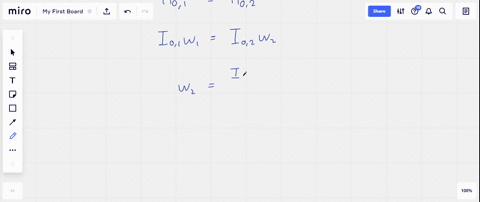 miro My First Board Share
H₀,₁ = H₀,₂
I₀,₁ω₁ = I₀,₂ω₂
ω₂ = I
100%